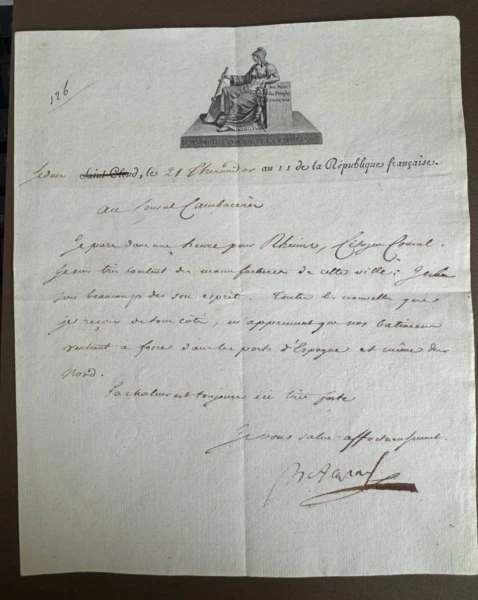 126
Au Nom
du Peuple
Français
BONAPARTE 1er CONSUL DE LA RÉPUBLIQUE
Sedan Saint-Cloud, le 21 Thermidor an 11 de la République française.
au Consul Cambacérès
Je pars dans une heure pour Rheims, Citoyen Consul.
Je suis très content des manufactures de cette ville; Je
suis beaucoup de son esprit. Toutes les nouvelles que
je reçois de tous côtés, m'apprennent que nos batimens
rentrent à force dans les ports d'Espagne et même du
Nord.
La chaleur est toujours ici très forte
Je vous salue affectueusement.